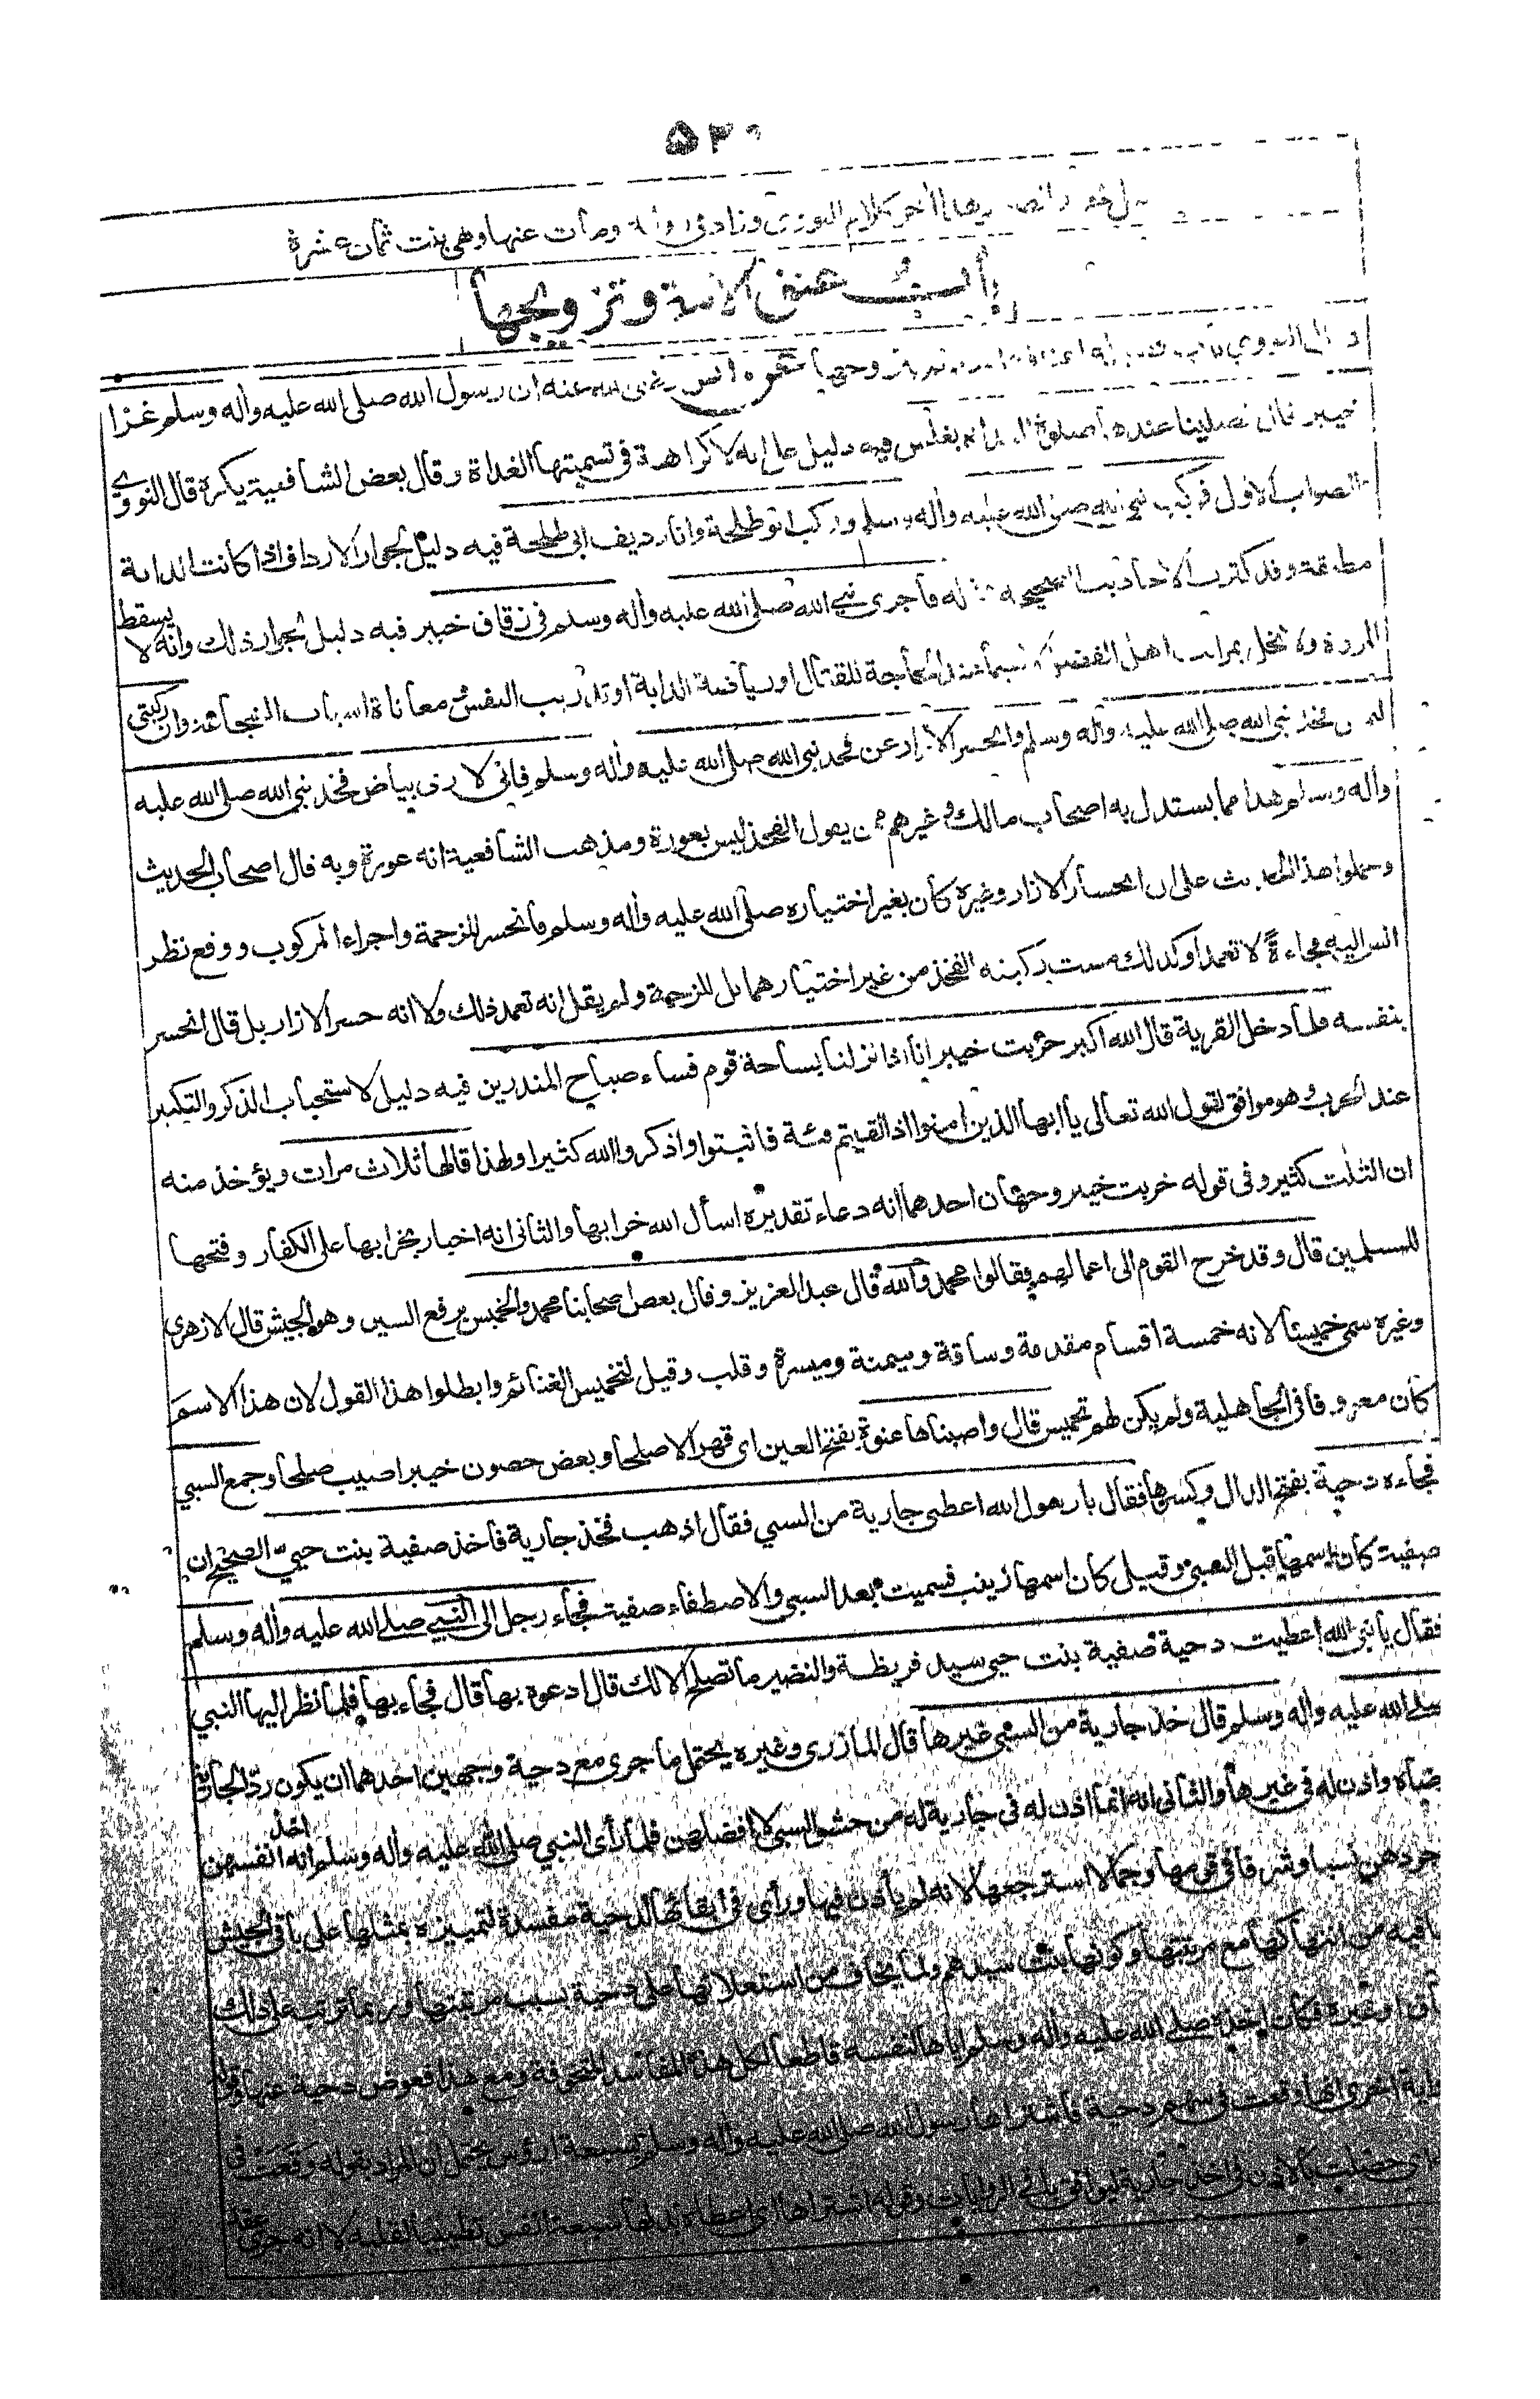 ۵۲۰
كلام النووي وزاد في رواية ومات عنها وهي بنت ثمان عشرة
باب عتق الامة وتزويجها
النووي عن انس رضي الله عنه ان رسول الله صلى الله عليه وأله وسلم غزا
خيبر قال فصلينا عندها صلوة الغداة بغلس فيه دليل على انه لا كراهة في تسميتها الغداة وقال بعض الشافعية يكره قال النووي
الصواب الاول فركب نبي الله صلى الله عليه وأله وسلم وركب ابو طلحة وانا رديف ابي طلحة فيه دليل لجواز الارداف اذا كانت الدابة
مطيقة وقد كثرت الاحاديث الصحيحة بمثله فاجرى نبي الله صلى الله عليه وأله وسلم في زقاق خيبر فيه دليل لجواز ذلك وانه لا يسقط
المروة ولا يخل بمراتب اهل الفضل لا سيما عند الحاجة للقتال او رياضة الدابة او تدريب النفس معاناة اسباب الشجاعة وان ركبتي
لتمس فخذ نبي الله صلى الله عليه وأله وسلم وانحسر الازار عن فخذ نبي الله صلى الله عليه وأله وسلم فاني لارى بياض فخذ نبي الله صلى الله عليه
وأله وسلم هذا مما يستدل به اصحاب مالك وغيرهم ممن يقول الفخذ ليس بعورة ومذهب الشافعية انه عورة وبه قال اصحاب الحديث
وحملوا هذا الحديث على ان انحسار الازار وغيره كان بغير اختياره صلى الله عليه وأله وسلم فانحسر للزحمة واجراء المركوب ووقع نظر
انس اليه فجاءة لا تعمدا وكذلك مست ركبته الفخذ من غير اختيارهما بل للزحمة ولم يقل انه تعمد ذلك ولا انه حسر الازار بل قال انحسر
بنفسه فلما دخل القرية قال الله اكبر خربت خيبر انا اذا نزلنا بساحة قوم فساء صباح المنذرين فيه دليل لاستحباب الذكر والتكبير
عند الحرب وهو موافق لقول الله تعالى يا ايها الذين امنوا اذا لقيتم فئة فاثبتوا واذكروا الله كثيرا ولهذا قالها ثلاث مرات ويؤخذ منه
ان الثلث كثير وفي قوله خربت خيبر وجهان احدهما انه دعاء تقديره اسأل الله خرابها والثاني انه اخبار بخرابها على الكفار وفتحها
للمسلمين قال وقد خرج القوم الى اعمالهم فقالوا محمد والله قال عبد العزيز وقال بعض اصحابنا محمد والخميس برفع السين وهو الجيش قال الازهري
وغيره سمي خميسا لانه خمسة اقسام مقدمة وساقة وميمنة وميسرة وقلب وقيل لتخميس الغنائم وابطلوا هذا القول لان هذا الاسم
كان معروفا في الجاهلية ولم يكن لهم تخميس قال واصبناها عنوة بفتح العين اي قهرا لا صلحا وبعض حصون خيبر اصيب صلحا وجمع السبي
فجاءه دحية بفتح الدال وكسرها فقال يا رسول الله اعطني جارية من السبي فقال اذهب فخذ جارية فاخذ صفية بنت حيي الصحيح ان
صفية كان اسمها قبل السبي وقيل كان اسمها زينب فسميت بعد السبي والاصطفاء صفية فجاء رجل الى النبي صلى الله عليه وأله وسلم
فقال يا نبي الله اعطيت دحية صفية بنت حيي سيد قريظة والنضير ما تصلح الا لك قال ادعوه بها قال فجاء بها فلما نظر اليها النبي
صلى الله عليه وأله وسلم قال خذ جارية من السبي غيرها قال المازري وغيره يحتمل ما جرى مع دحية وجهين احدهما ان يكون رد الجارية
برضاه واذن له في غيرها والثاني انه انما اذن له في جارية له من حشو السبي لا افضلهن فلما رأى النبي صلى الله عليه وأله وسلم انه اخذ انفسهن
واجودهن نسبا وشرفا في قومها وجمالا استرجعها لانه لم يأذن فيها ورأى في ابقائها لدحية مفسدة لتميزه بمثلها على باقي الجيش
ولما فيه من انتهاكها مع مرتبتها وكونها بنت سيدهم ولما يخاف من استعلائها على دحية بسبب مرتبتها وربما ترتب على ذلك
شقاق او غيره فكان اخذه صلى الله عليه وأله وسلم اياها لنفسه قاطعا لكل هذه المفاسد المتخوفة ومع هذا فعوض دحية عنها وفي
رواية اخرى انها وقعت في سهم دحية فاشتراها رسول الله صلى الله عليه وأله وسلم بسبعة ارؤس يحتمل ان المراد بقوله وقعت في
اي حصلت بالاذن في اخذ جارية ليوافق باقي الروايات وقوله اشتراها اي اعطاه بدلها سبعة انفس تطييبا لقلبه لا انه جرى عقد